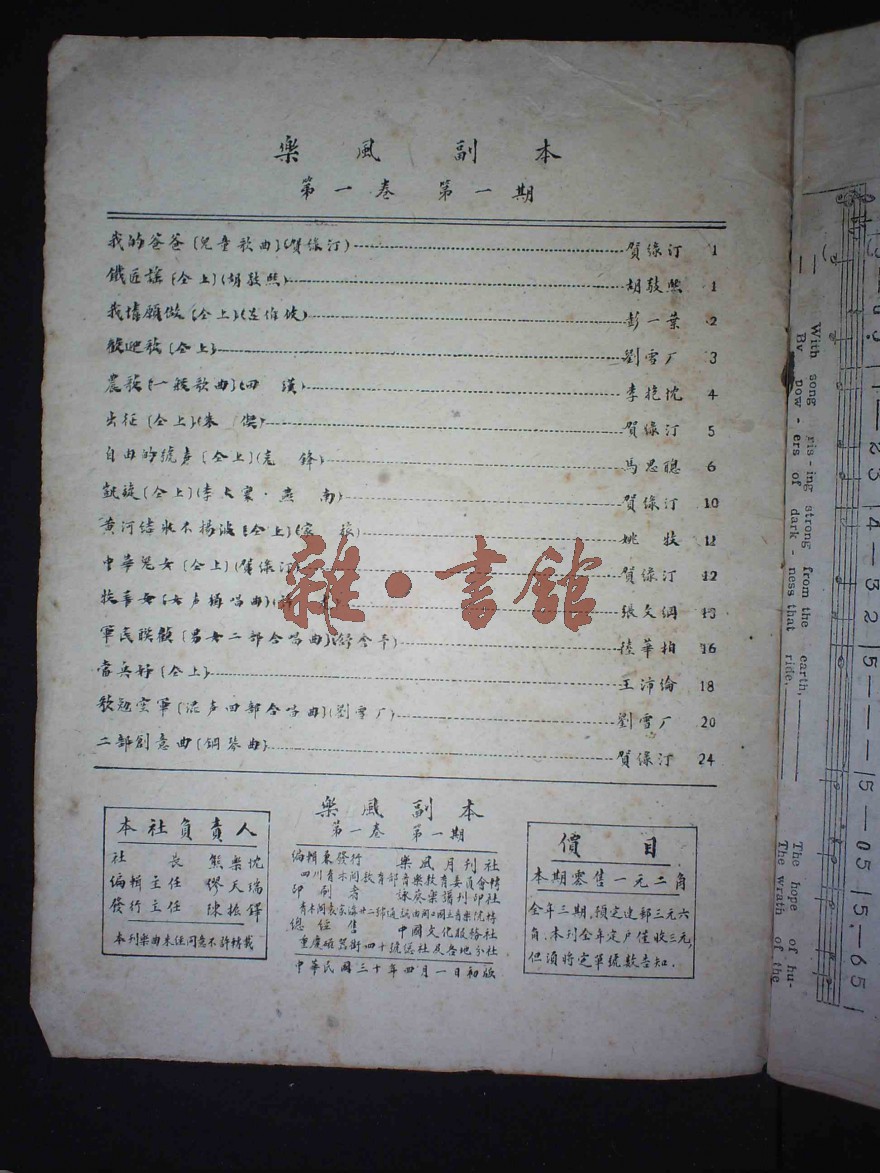 樂風副本
第一卷 第一期
我的爸爸(兒童歌曲)(賀綠汀) 賀綠汀 1
鐵匠謠(仝上)(胡敬熙) 胡敬熙 1
我情願做(仝上) 彭一葉 2
歡迎歌(仝上) 劉雪厂 3
農歌(一般歌曲)(田 漢) 李抱忱 4
出征(仝上)(朱 偰) 賀綠汀 5
自由的號聲(仝上)(克 鋒) 馬思聰 6
凱旋(仝上)(李大棠·燕 南) 賀綠汀 10
黃河結冰不揚波(仝上) 姚牧 11
中華兒女(仝上)(賀綠汀) 賀綠汀 12
(女声獨唱曲) 張文綱 13
軍民聯歡(男女二部合唱曲)(舒舍予) 陸華柏 16
當兵好(仝上) 王沛綸 18
歌冠空軍(混声四部合唱曲)(劉雪厂) 劉雪厂 20
二部創意曲(鋼琴曲) 賀綠汀 24
雜·書館
本社負責人
社長 熊樂忱
編輯主任 繆天瑞
發行主任 陳振鐸
本刊樂曲未經同意不許轉載
樂風副本
第一卷 第一期
編輯兼發行 樂風月刊社
四川青木関教育部音樂教育委員會轉
印刷者 詠葵樂譜刊印社
總經售 中國文化服務社
重慶磁器街四十號總社及各地分社
中華民國三十年四月一日初版
價目
本期零售一元二角
全年三期,預定連郵三元六
角,本刊全年定户僅收三元,
但須將定單號數告知.
With song ris - ing strong from the earth,
By pow - ers of dark - ness that ride,
The hope of hu-
The wrath of the